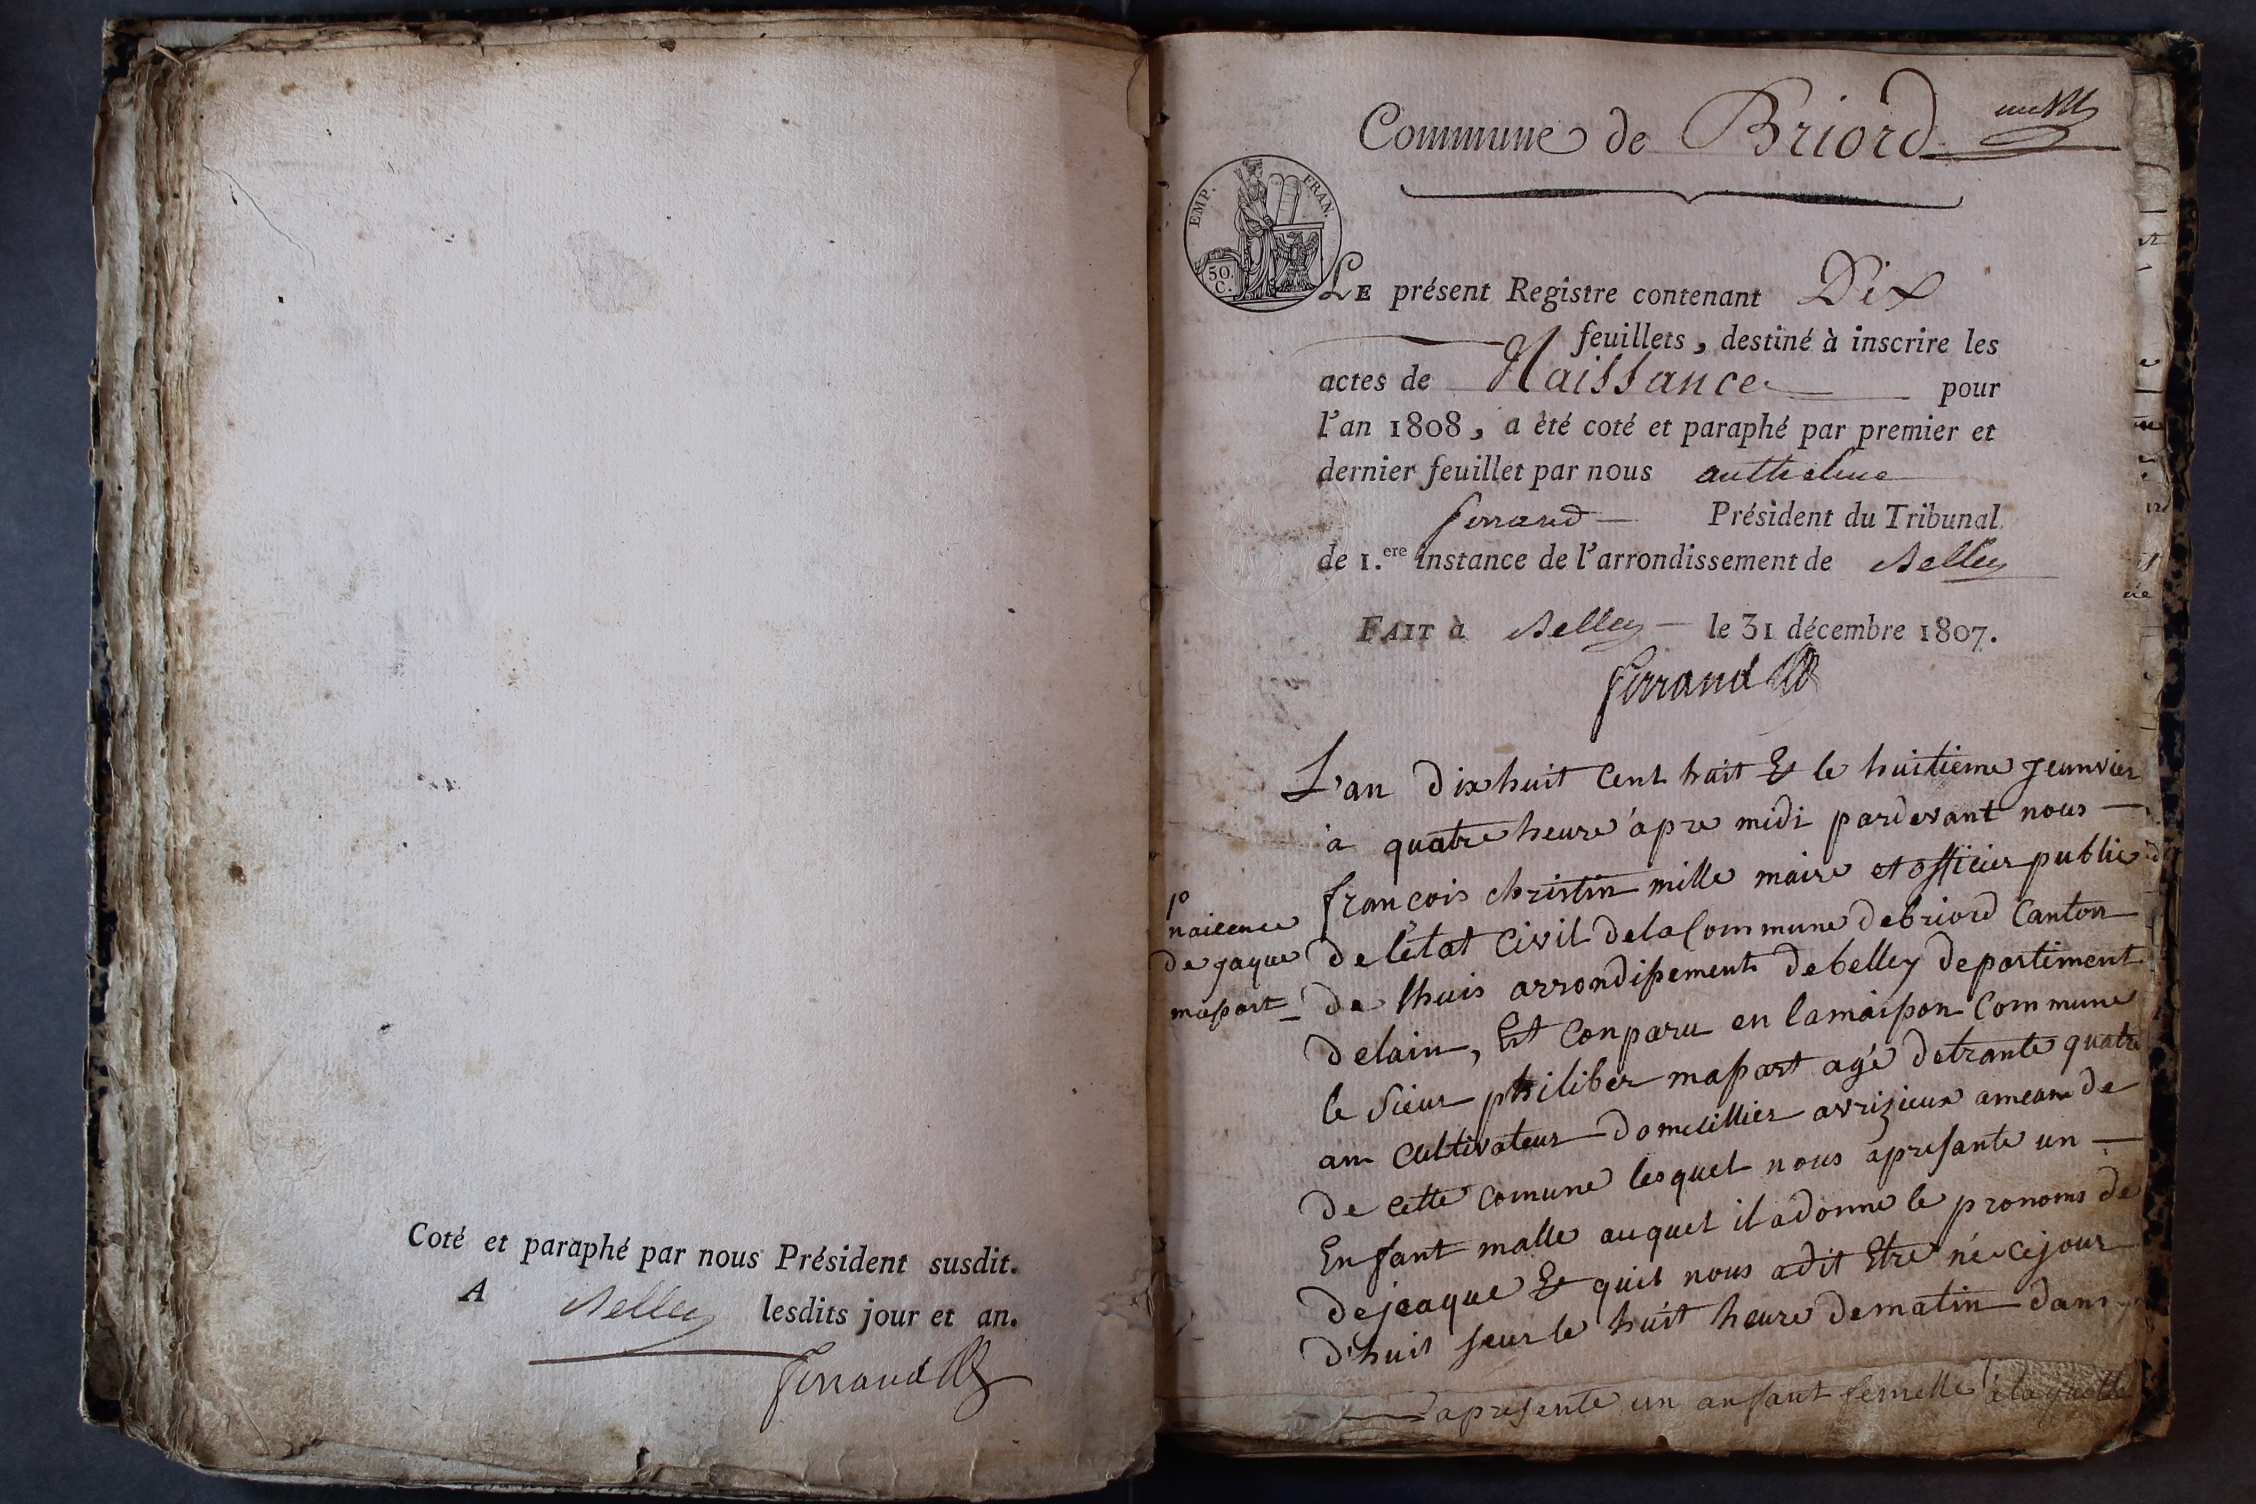 Coté et paraphé par nous Président susdit.
A Belley lesdits jour et an.
Ferrand
Commune de Briord
EMP. FRAN.
50. C.
LE présent Registre contenant Dix
feuillets, destiné à inscrire les
actes de Naissance pour
l'an 1808, a été coté et paraphé par premier et
dernier feuillet par nous anthelme
ferrand Président du Tribunal
de 1.ere instance de l'arrondissement de Belley
FAIT à Belley le 31 décembre 1807.
Ferrand
L'an dixhuit cent huit & le huitieme jeunvier
à quatre heure apre midi pardevant nous
francois christin mille maire et officier public
de l'état civil dela Commune debriord Canton
de lhuis arrondissement debelley departiment
delain, Est conparu en lamaison Commune
le sieur philiber massart agé detrante quatre
an cultivateur domicillier avrizieux ameau de
de cette comune lesquel nous apresante un
Enfant malle auquel il adonne le pronoms de
dejeaque & quil nous adit Etre né cejour
d'huit seur le huit heure dematin dans
1º
naicence
de jaque
massart
apresente un anfant femelle alaquelle